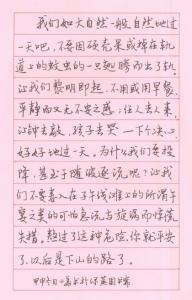 我们如大自然一般自然地过
一天吧,不要因硬壳果或掉在轨
道上的蚊虫的一只翅膀而出了轨。
让我们黎明即起,不用或用早餐,
平静而又无不安之感;任人去人来,
让钟去敲,孩子去哭 — 下个决心
好好地过一天。为什么我们要投
降,甚至于随波逐流呢?让我
们不要卷入在子午线浅滩上的所谓午
宴之类的可怕急流与旋涡而惊慌
失措。熬过了这种危险,你就平安
了,以后是下山的路了。